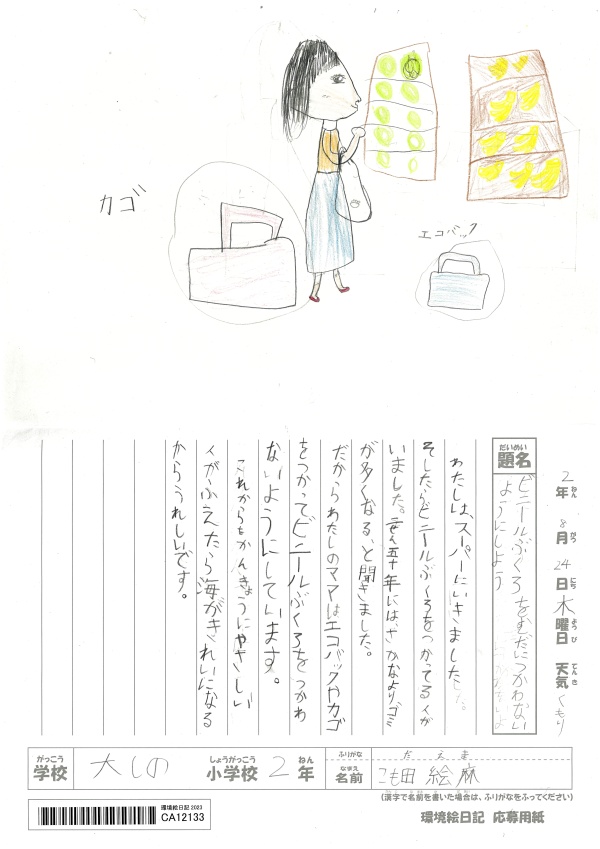 カゴ
エコバック
2年 8月 24日 木曜日 天気 くもり
ねん がつ にち ようび てんき
だいめい
題名
ビニールぶくろをむだにつかわない
ようにしよう
わたしは、スーパーにいきました。
そしたらビニールぶくろをつかってる人が
いました。二せん五十年には、さかなよりゴミ
が多くなる、と聞きました。
だからわたしのママはエコバックやカゴ
をつかってビニールぶくろをつかわ
ないようにしています。
これからもかんきょうにやさしい
人がふえたら海がきれいになる
からうれしいです。
がっこう しょうがっこう ねん
学校 大しの 小学校 2年
ふりがな だ え ま
なまえ
名前 こも田 絵麻
(漢字で名前を書いた場合は、ふりがなをふってください)
環境絵日記 2023
CA12133
環境絵日記 応募用紙